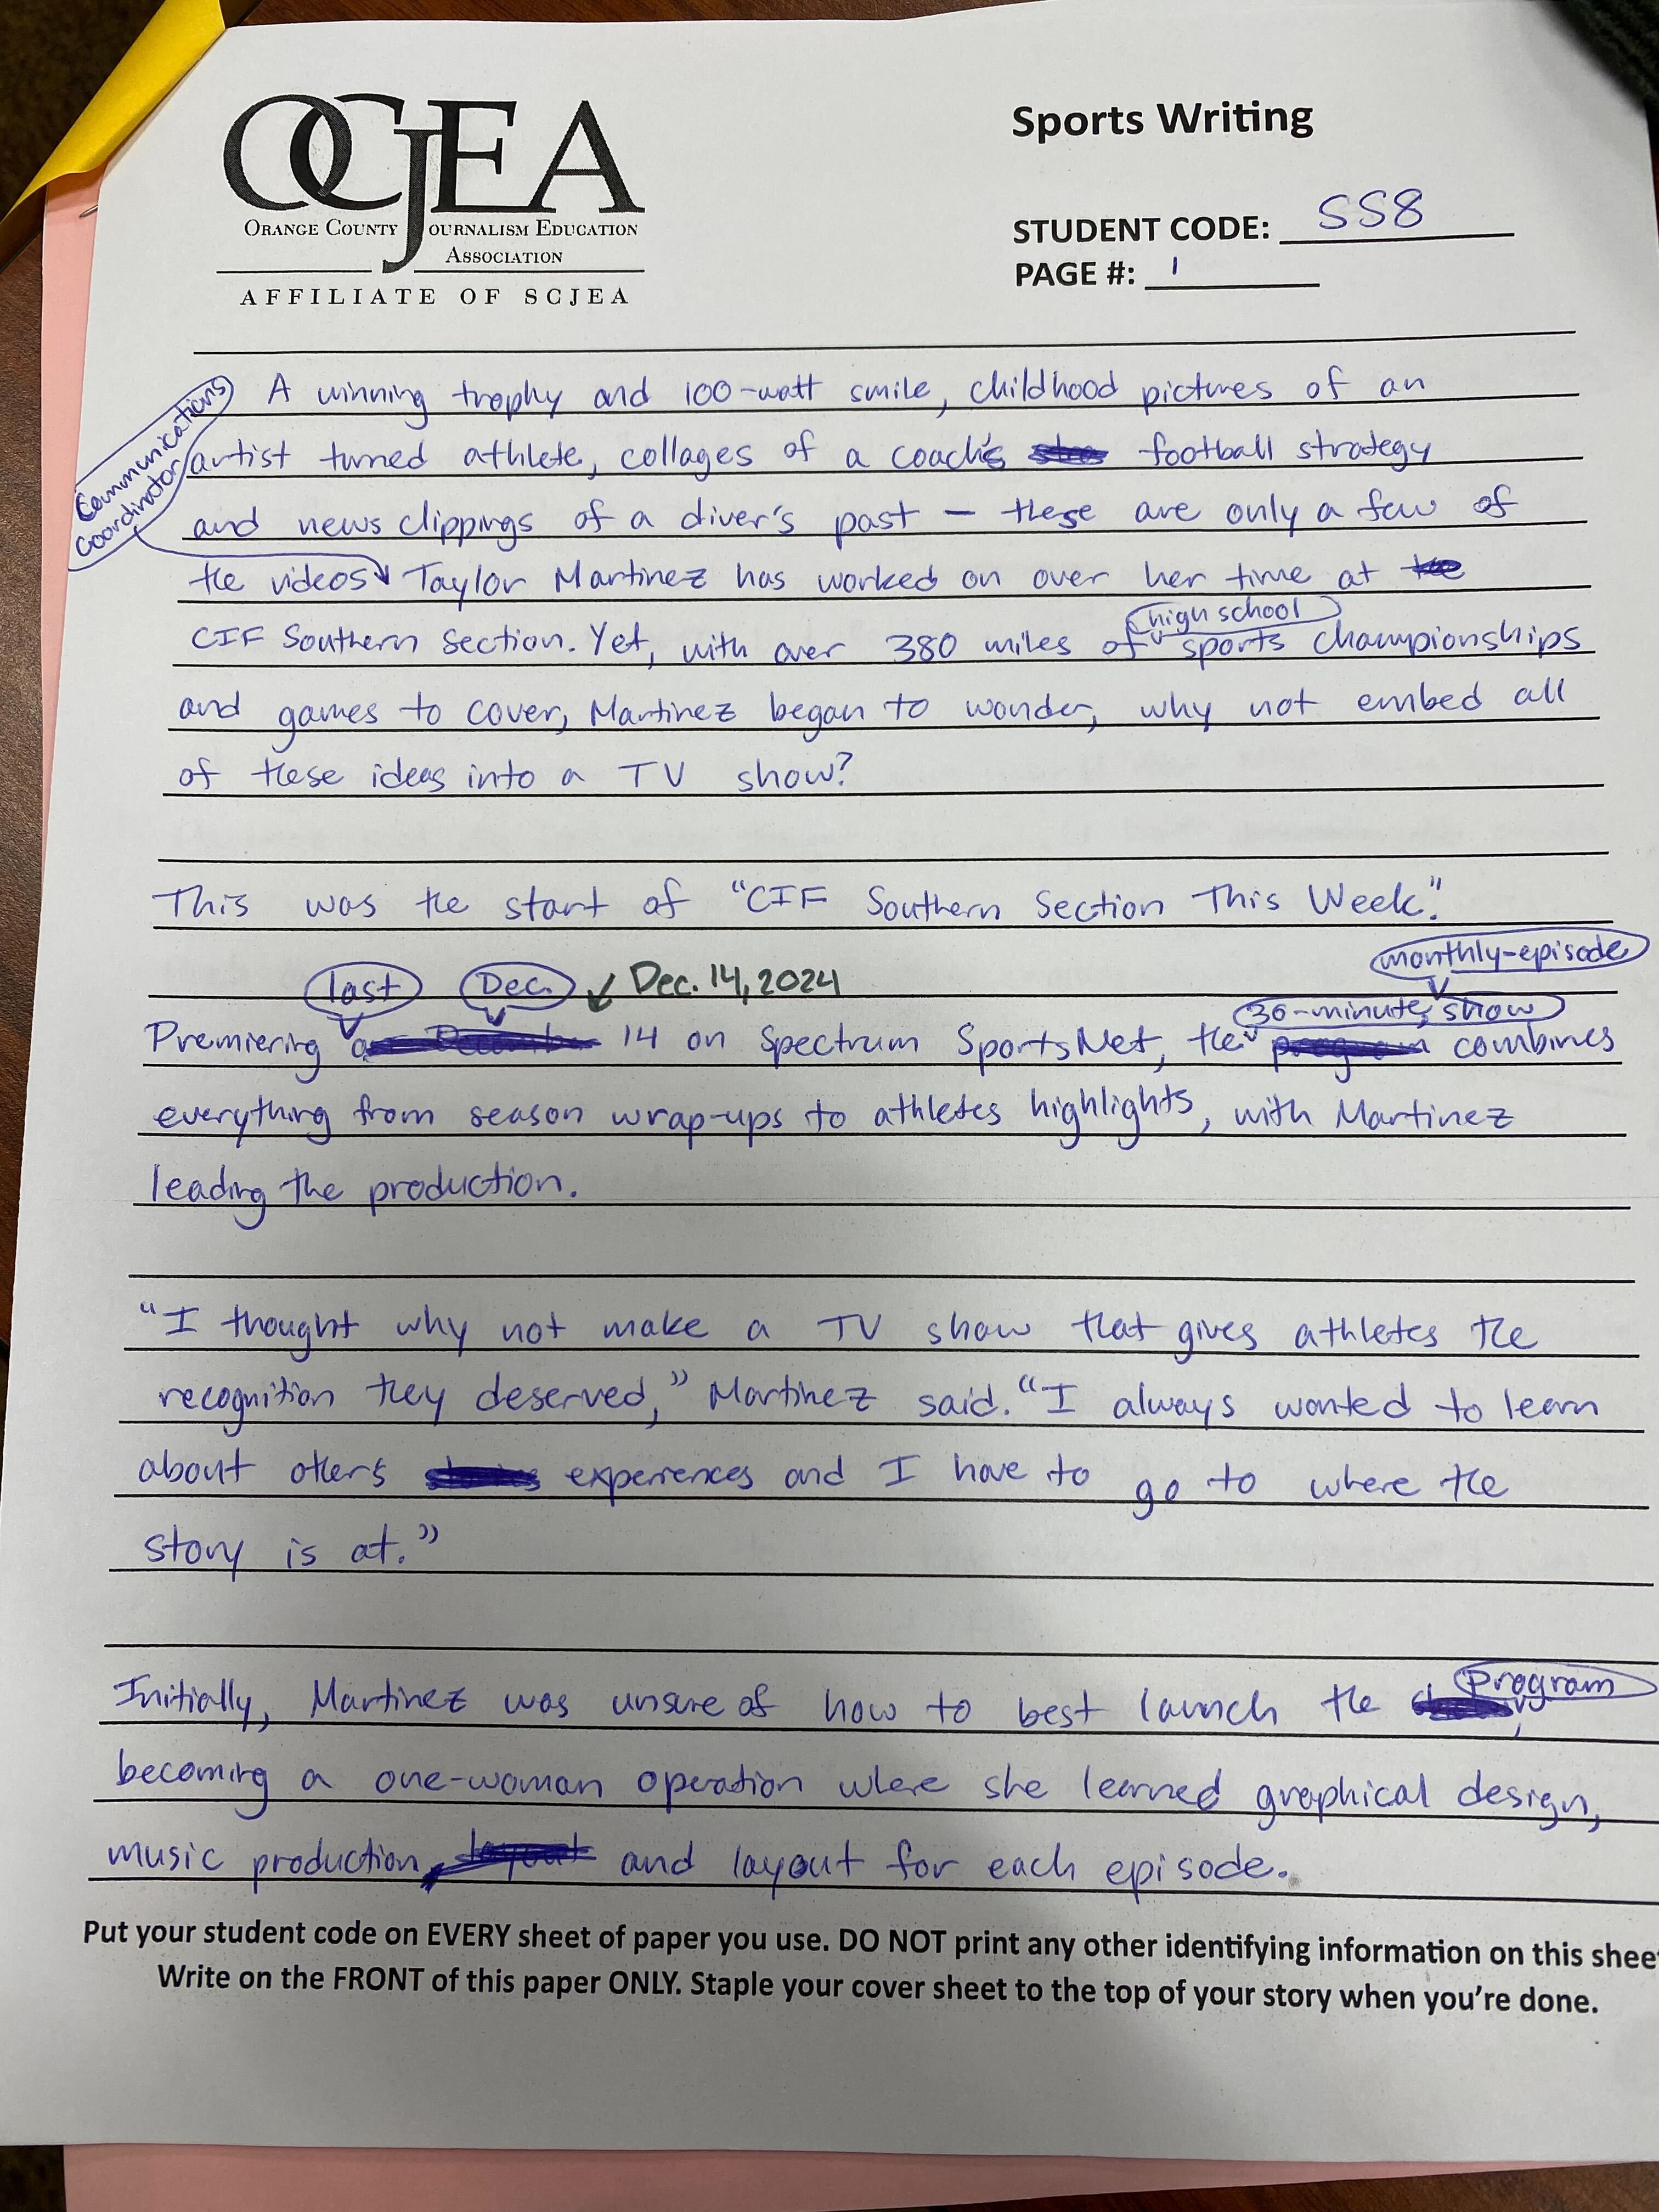 OCJEA
ORANGE COUNTY JOURNALISM EDUCATION
ASSOCIATION
AFFILIATE OF SCJEA
Sports Writing
STUDENT CODE: SS8
PAGE #: 1
Communications
Coordinator
A winning trophy and 100-watt smile, childhood pictures of an
artist turned athlete, collages of a coach's football strategy
and news clippings of a diver's past – these are only a few of
the videos Taylor Martinez has worked on over her time at the
high school
CIF Southern Section. Yet, with over 380 miles of sports championships
and games to cover, Martinez began to wonder, why not embed all
of these ideas into a TV show?
This was the start of "CIF Southern Section This Week."
monthly-episode
last Dec. Dec. 14, 2024
30-minute, show
Premiering 14 on Spectrum SportsNet, the program combines
everything from season wrap-ups to athletes highlights, with Martinez
leading the production.
"I thought why not make a TV show that gives athletes the
recognition they deserved," Martinez said. "I always wanted to learn
about others experiences and I have to go to where the
story is at."
Program
Initially, Martinez was unsure of how to best launch the
becoming a one-woman operation where she learned graphical design,
music production layout and layout for each episode.
Put your student code on EVERY sheet of paper you use. DO NOT print any other identifying information on this shee
Write on the FRONT of this paper ONLY. Staple your cover sheet to the top of your story when you're done.